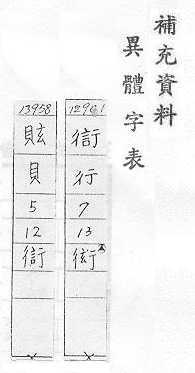 補充資料
異體字表
12961
行
7
13
衒
13958
貝
5
12